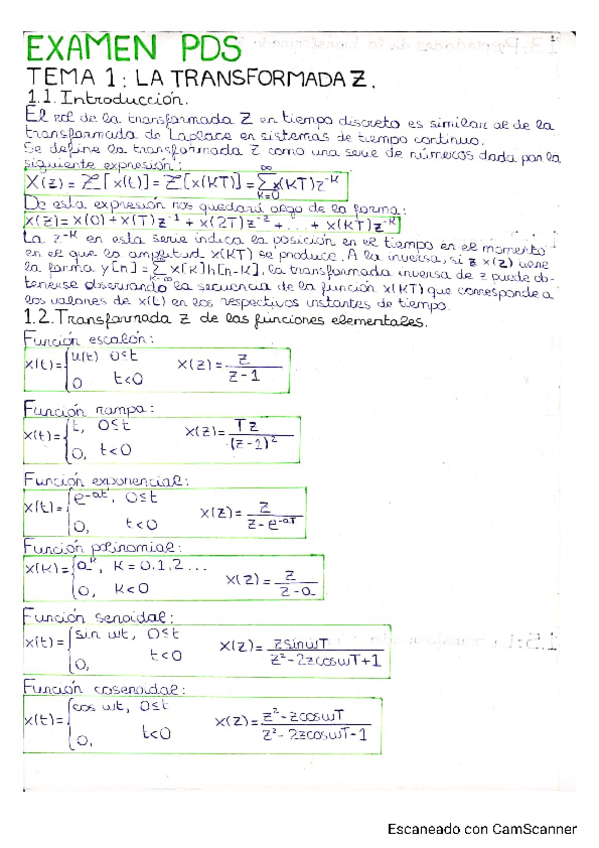 EXAMEN PDS
TEMA 1: LA TRANSFORMADA Z.
1.1. Introducción.
El rol de la transformada Z en tiempo discreto es similar al de la
transformada de Laplace en sistemas de tiempo continuo.
Se define la transformada Z como una serie de números dada por la
siguiente expresión:
X(z) = Z[x(t)] = Z[x(KT)] = ∑_{K=0}^{∞} x(KT)z^{-K}
De esta expresión nos quedará algo de la forma:
X(z) = x(0) + x(T)z^{-1} + x(2T)z^{-2} + ... + x(KT)z^{-K}
La z^{-K} en esta serie indica la posición en el tiempo en el momento
en el que la amplitud x(KT) se produce. A la inversa, si X(z) viene
la forma y[n] = ∑ x[K]h[n-K], la transformada inversa de z puede ob-
tenerse observando la secuencia de la función x(KT) que corresponde a
los valores de x(t) en los respectivos instantes de tiempo.
1.2. Transformada z de las funciones elementales.
Función escalón:
x(t) = { u(t) 0≤t X(z) = z / (z-1)
0 t<0
Función rampa:
x(t) = { t, 0≤t X(z) = Tz / (z-1)²
0, t<0
Función exponencial:
x(t) = { e^{-at}, 0≤t X(z) = z / (z - e^{-aT})
0, t<0
Función polinomial:
x(K) = { a^K, K = 0,1,2... X(z) = z / (z-a)
0, K<0
Función senoidal:
x(t) = { sin ωt, 0≤t X(z) = z sin ωT / (z² - 2z cos ωT + 1)
0, t<0
Función cosenoidal:
x(t) = { cos ωt, 0≤t X(z) = z² - z cos ωT / (z² - 2z cos ωT - 1)
0, t<0
Escaneado con CamScanner